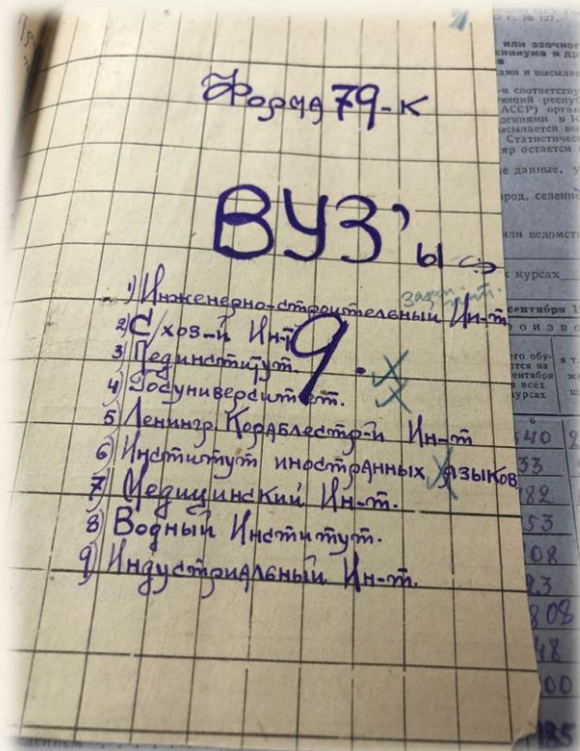 Форма 79-К
ВУЗ'ы
1) Инженерно-строительный Ин-т
2) С/хоз-й Ин-т
9.
3) Пединститут.
4) Госуниверситет.
5) Ленингр Кораблестр-й Ин-т
6) Институт иностранных языков
7) Медицинский Ин-т.
8) Водный Институт.
9) Индустриальный Ин-т.
или заочного
никума и др
ами и высылае
в соответству
ующий респуб
АССР) орган
дениями в
Статистичес
яр остается
е данные, у
ород, селени
или ведомст
курсах
сентября
его обу-
ется на
сентября
всех
курсах
в т
6
540
33
82
53
08
93
808
48
00
185